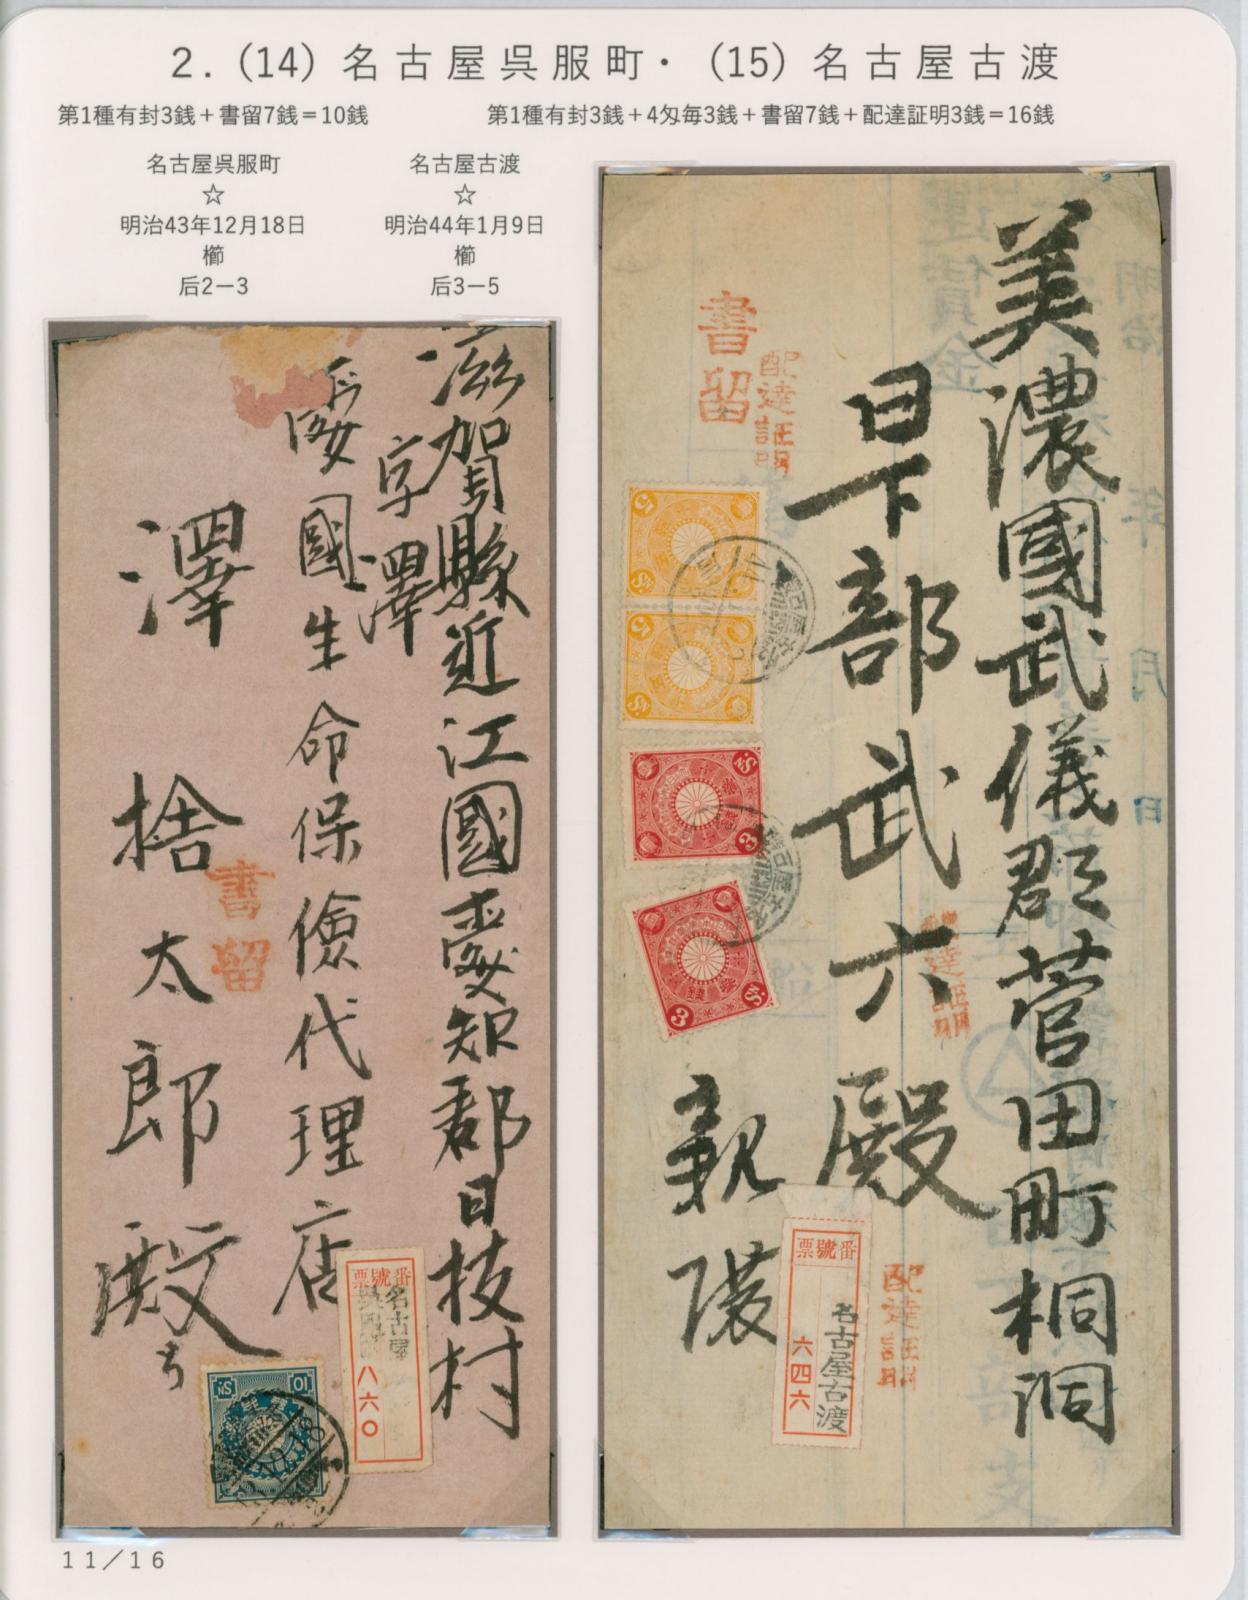 2.(14)名古屋呉服町・(15)名古屋古渡
第1種有封3銭+書留7銭=10銭
第1種有封3銭+4匁毎3銭+書留7銭+配達証明3銭=16銭
名古屋呉服町
☆
明治43年12月18日
櫛
后2-3
名古屋古渡
☆
明治44年1月9日
櫛
后3-5
滋賀縣近江國愛知郡日枝村
字澤
國生命保険代理店
澤捨太郎殿
書留
番號票
名古屋
八六〇
10
SN
美濃國武儀郡菅田町桐洞
日下部武六殿
親展
書留
配達証明
配達証明
配達証明
5
SN
5
SN
3
SN
3
SN
番號票
名古屋古渡
六四六
明治
年
月
日
11/16